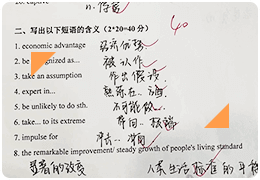 二、写出以下短语的含义 (2*20=40分) 40
1. economic advantage 经济优势
2. be ...gnized as... 被认作
3. take an assumption 作出假设
4. expert in... 熟练在..
5. be unlikely to do sth. 不可能做..
6. take... to its extreme
7. impulse for 冲击
8. the remarkable improvement/ steady growth of people's living standard
显著的改变 人类生活标准的